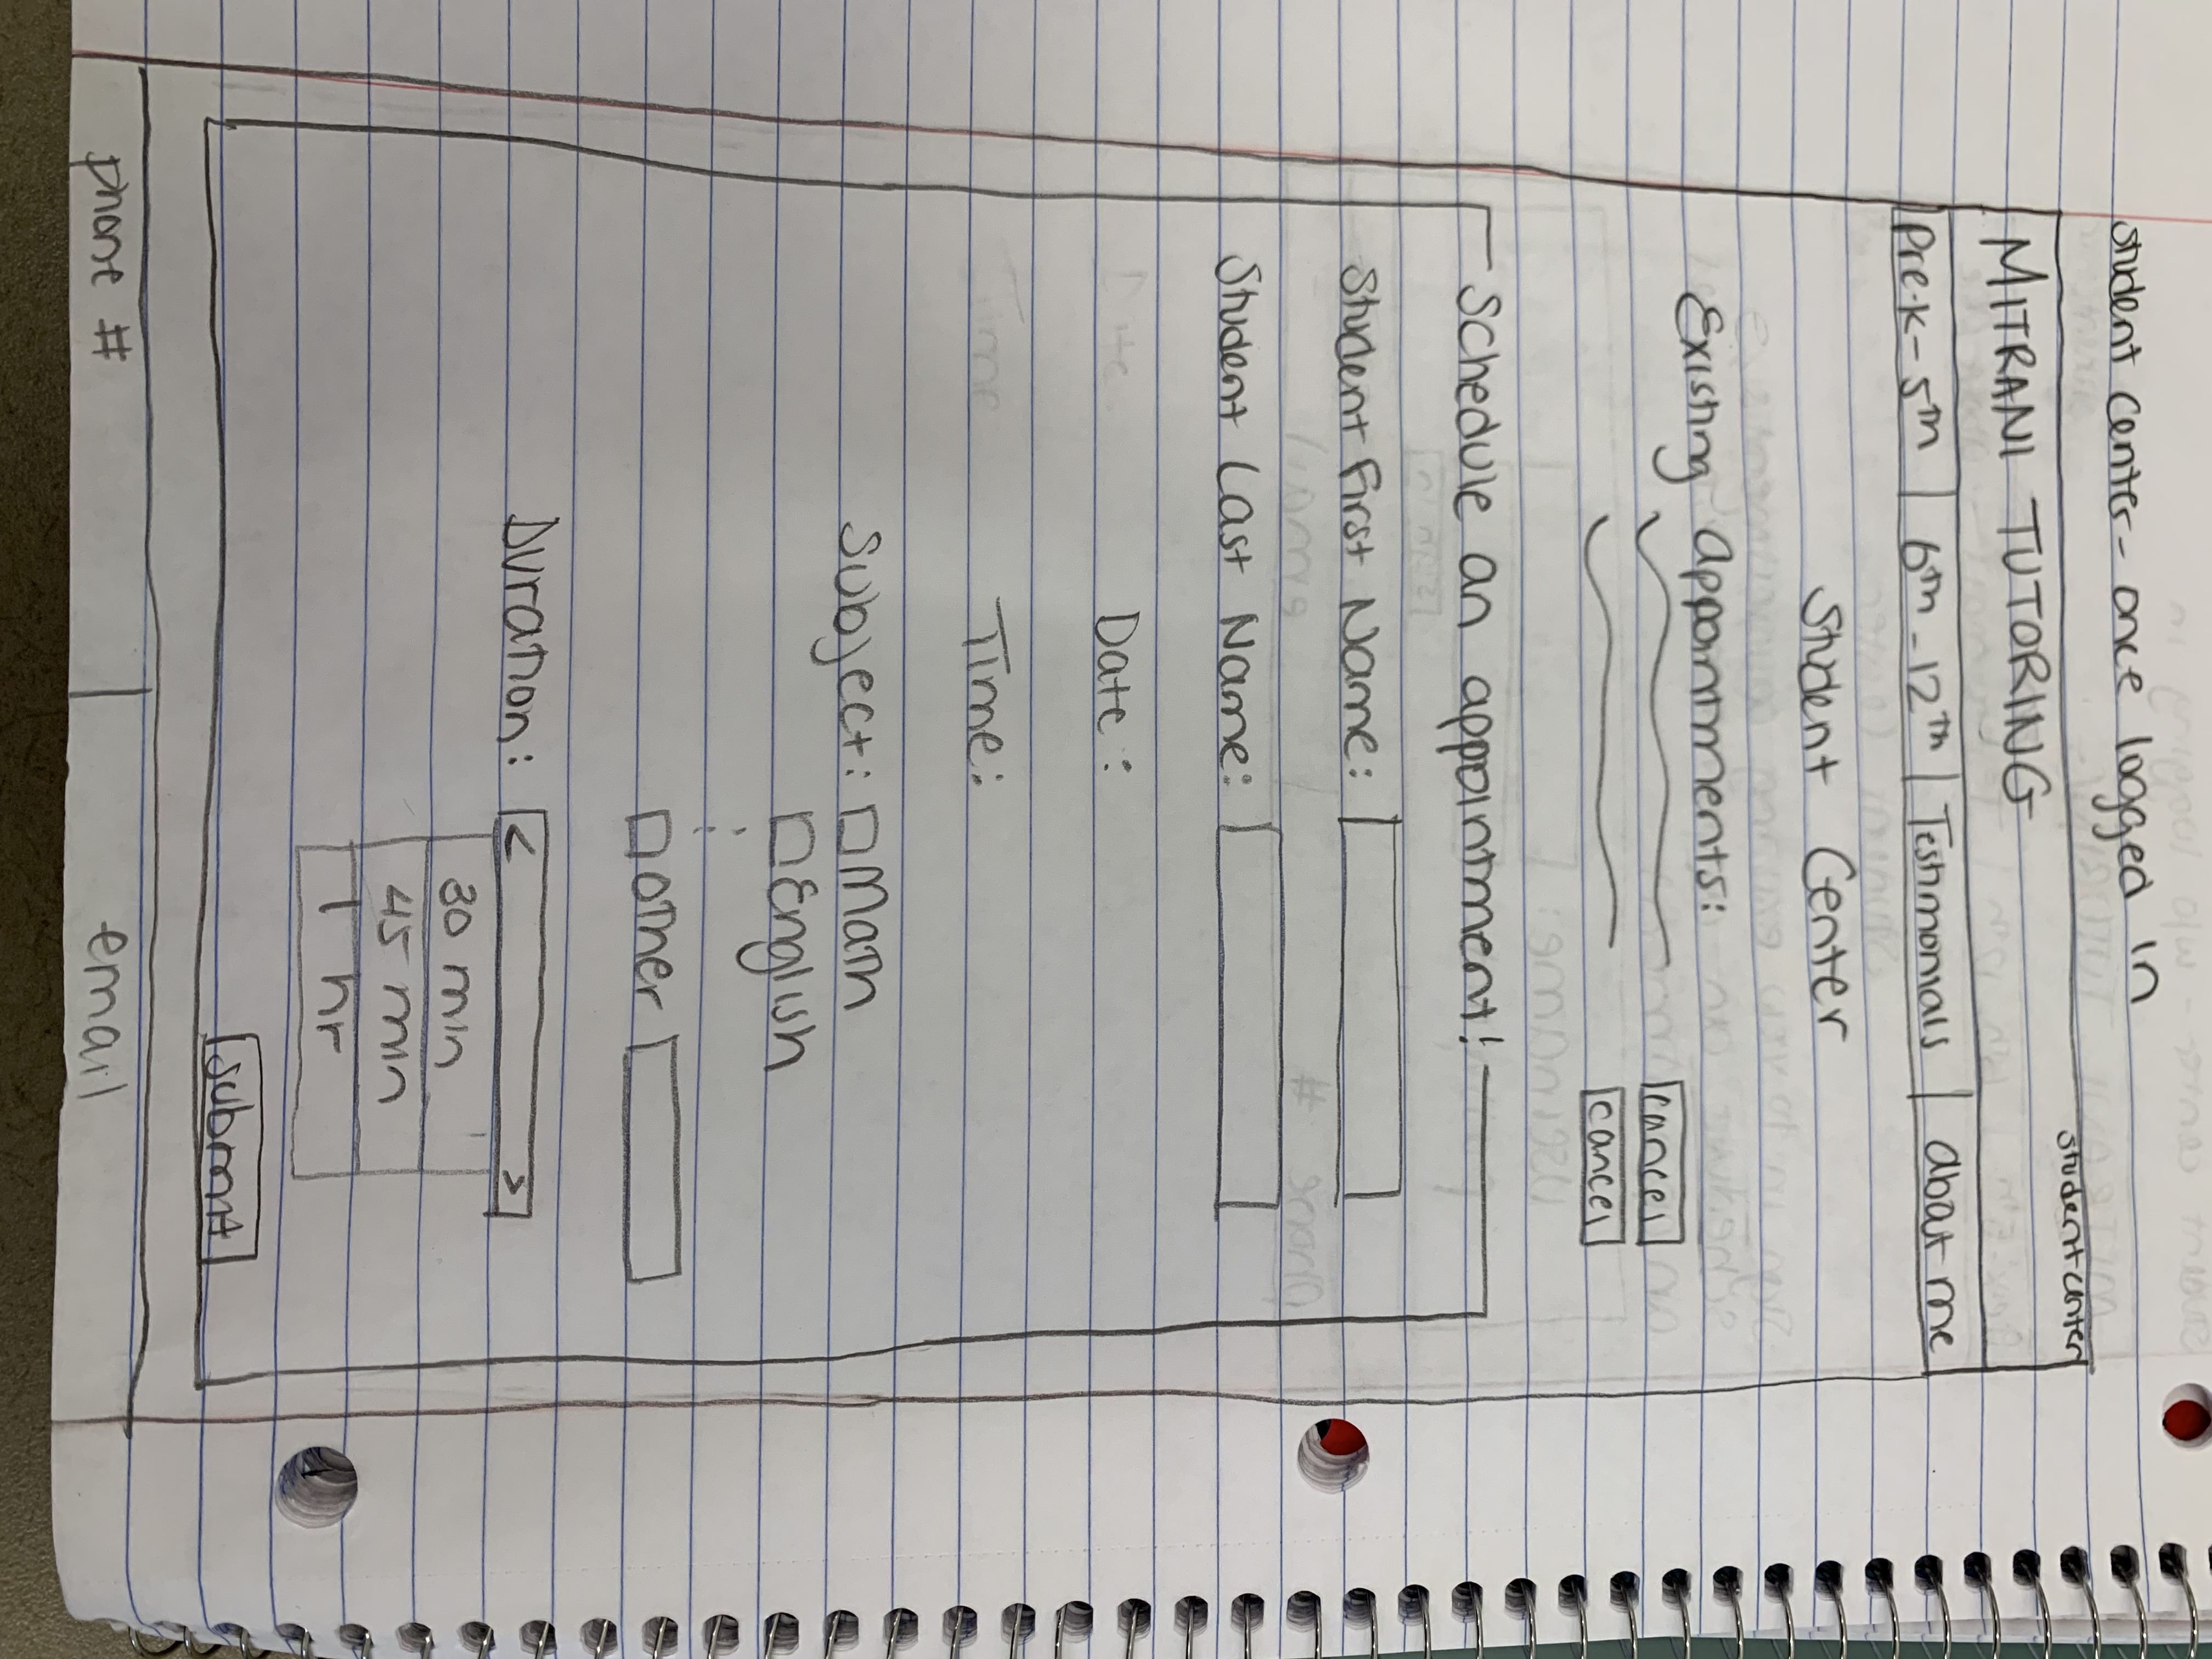 student center - once logged in
student center
MITRANI TUTORING
Pre-K - 5th | 6th - 12th | Testimonials | about me
Student Center
Existing appointments:
cancel
cancel
Schedule an appointment!
Student First Name:
Student Last Name:
Date:
Time:
Subject: □ Math
□ English
□ other
Duration: < >
30 min
45 min
1 hr
submit
phone # | email